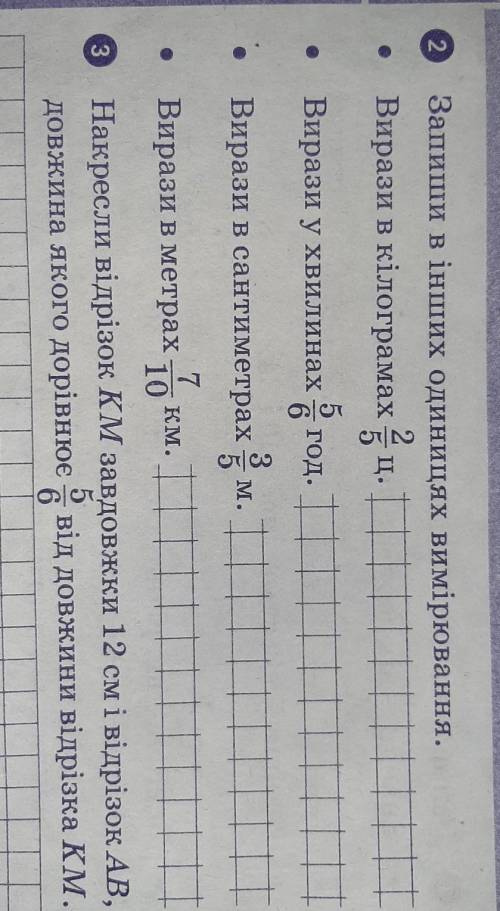 2 Запиши в інших одиницях вимірювання.
• Вирази в кілограмах 2/5 ц.
• Вирази у хвилинах 5/6 год.
• Вирази в сантиметрах 3/5 м.
• Вирази в метрах 7/10 км.
3 Накресли відрізок КМ завдовжки 12 см і відрізок АВ,
довжина якого дорівнює 5/6 від довжини відрізка КМ.